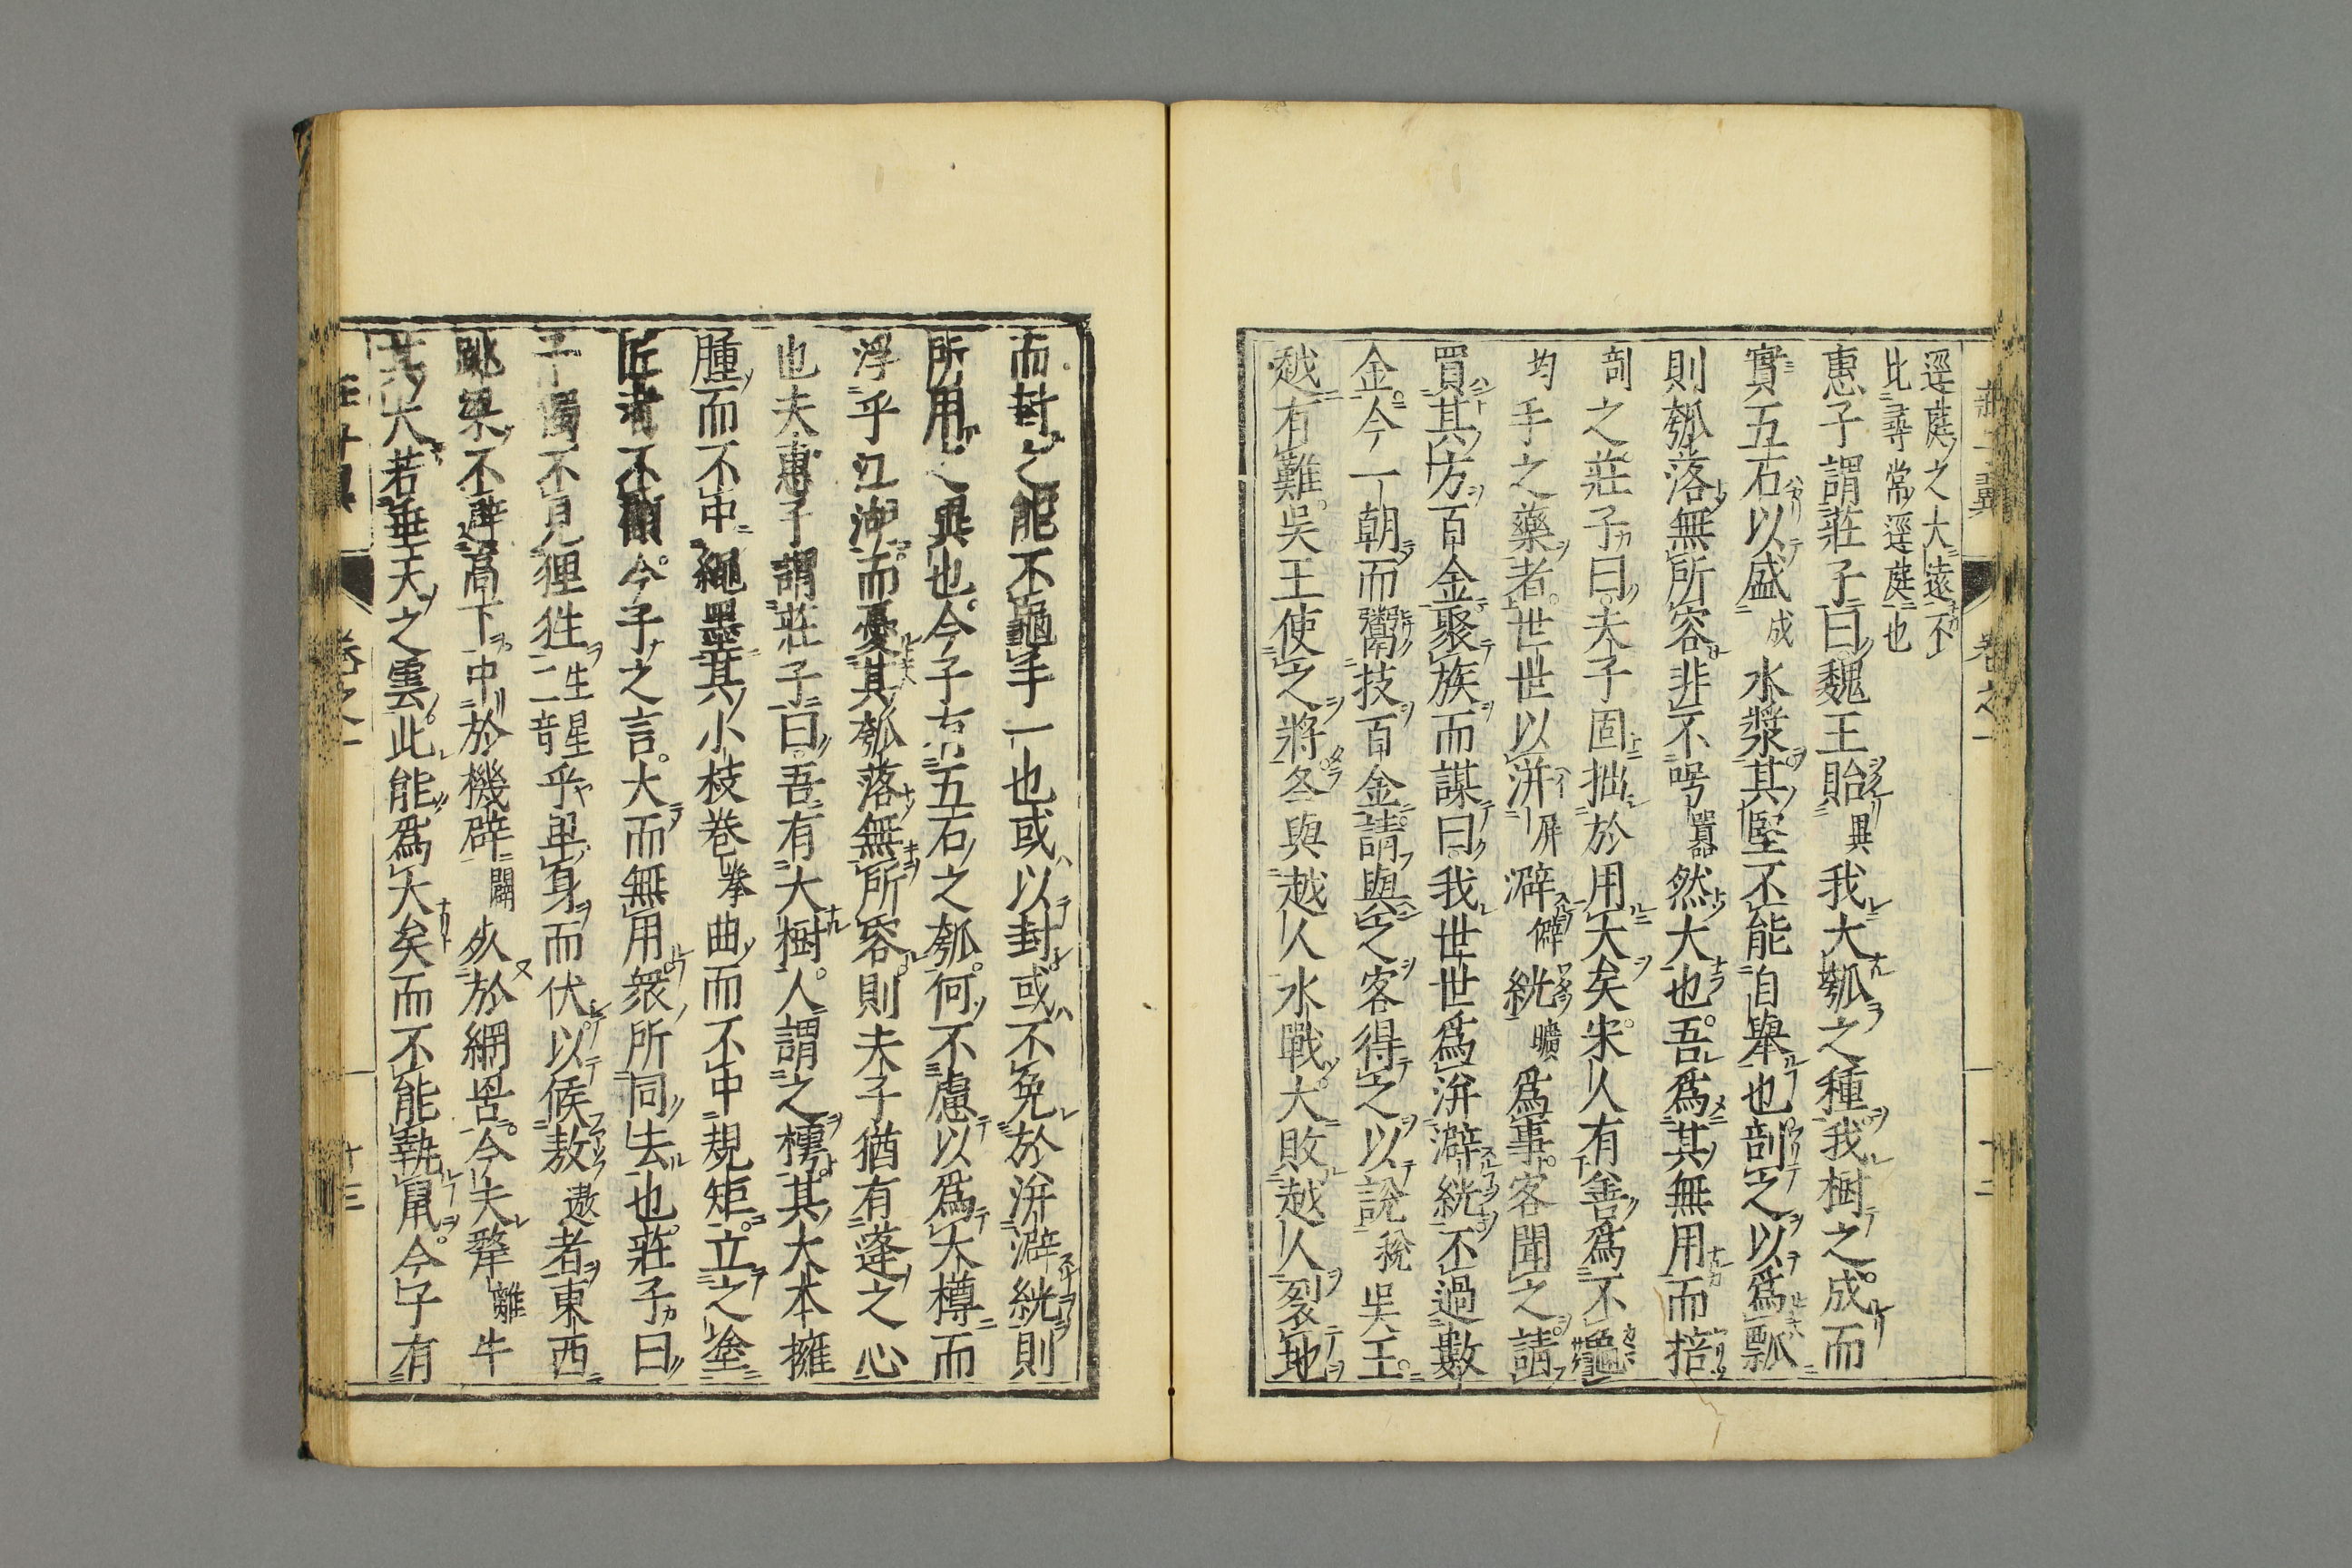 逕庭之大遠不
比尋常逕庭也
惠子謂莊子曰魏王貽異我大瓠之種我樹之成而
實五石以盛成水漿其堅不能自舉也剖之以爲瓢
則瓠落無所容非不呺囂然大也吾爲其無用而掊
剖之莊子曰夫子固拙於用大矣宋人有善爲不龜
均手之藥者世世以洴屏澼僻絖曠爲事客聞之請
買其方百金聚族而謀曰我世世爲洴澼絖不過數
金今一朝而鬻技百金請與之客得之以說稅吳王
越有難吳王使之將冬與越人水戰大敗越人裂地
而封之能不龜手一也或以封或不免於洴澼絖則
所用之異也今子有五石之瓠何不慮以爲大樽而
浮乎江湖而憂其瓠落無所容則夫子猶有蓬之心
也夫惠子謂莊子曰吾有大樹人謂之樗其大本擁
腫而不中繩墨其小枝卷拳曲而不中規矩立之塗
匠者不顧今子之言大而無用衆所同去也莊子曰
子獨不見狸狌生星二音乎卑身而伏以候敖遨者東西
跳梁不避高下中於機辟闢死於網罟今夫斄離牛
其大若垂天之雲此能爲大矣而不能執鼠今子有
卷之一
十三